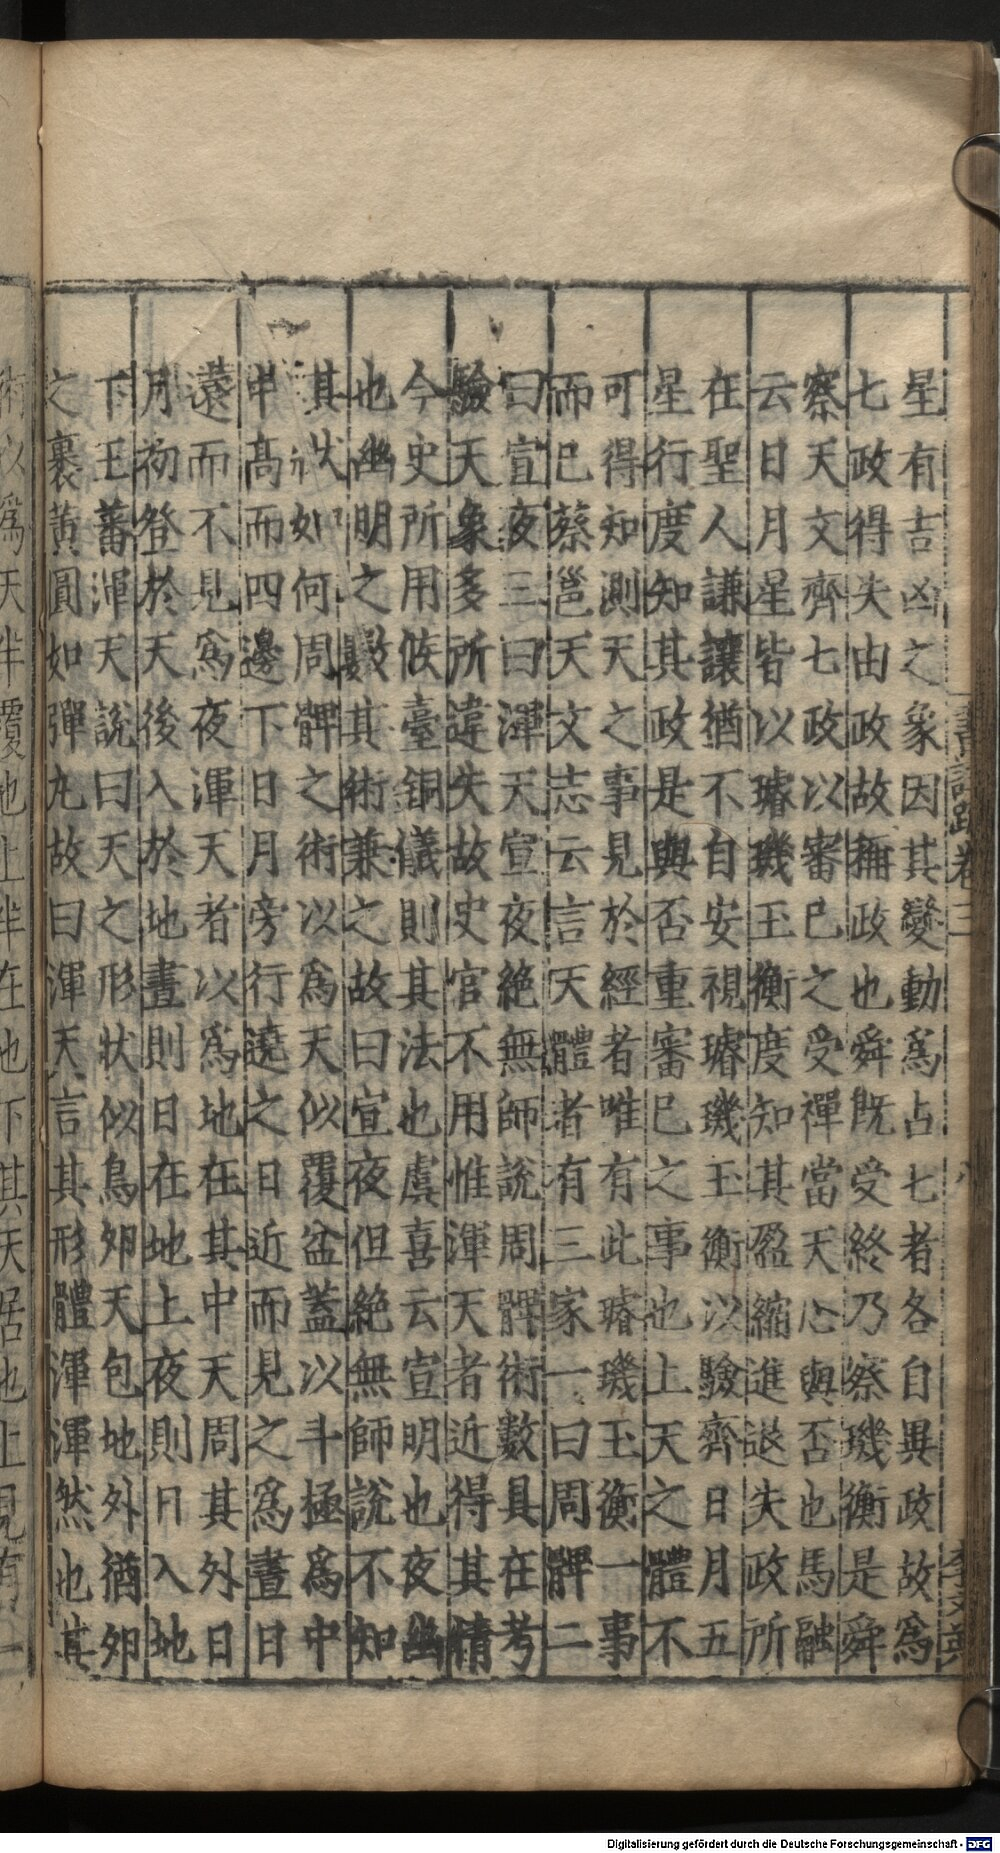 星有吉凶之象因其變動爲占七者各自異政故爲
七政得失由政故稱政也舜既受終乃察璣衡是舜
察天文齊七政以審已之受禪當天心與否也馬融
云日月星皆以璿璣玉衡度知其盈縮進退失政所
在聖人謙讓猶不自安視璿璣玉衡以驗齊日月五
星行度知其政是與否重審已之事也上天之體不
可得知測天之事見於經者唯有此璿璣玉衡一事
而已蔡邕天文志云言天體者有三家一曰周髀二
曰宣夜三曰渾天宣夜絶無師說周髀術數具在考
驗天象多所違失故史官不用惟渾天者近得其情
今史所用候臺銅儀則其法也虞喜云宣明也夜幽
也幽明之數其術兼之故曰宣夜但絶無師說不知
其狀如何周髀之術以爲天似覆盆蓋以斗極爲中
中高而四邊下日月旁行遶之日近而見之爲晝日
遠而不見爲夜渾天者以爲地在其中天周其外日
月初登於天後入於地晝則日在地上夜則日入地
下王蕃渾天說曰天之形狀似鳥夘天包地外猶夘
之裏黃圓如彈丸故曰渾天言其形體渾渾然也其
書註疏卷三
八
術以爲天半覆地上半在地下其天居地上見有一
Digitalisierung gefördert durch die Deutsche Forschungsgemeinschaft - DFG